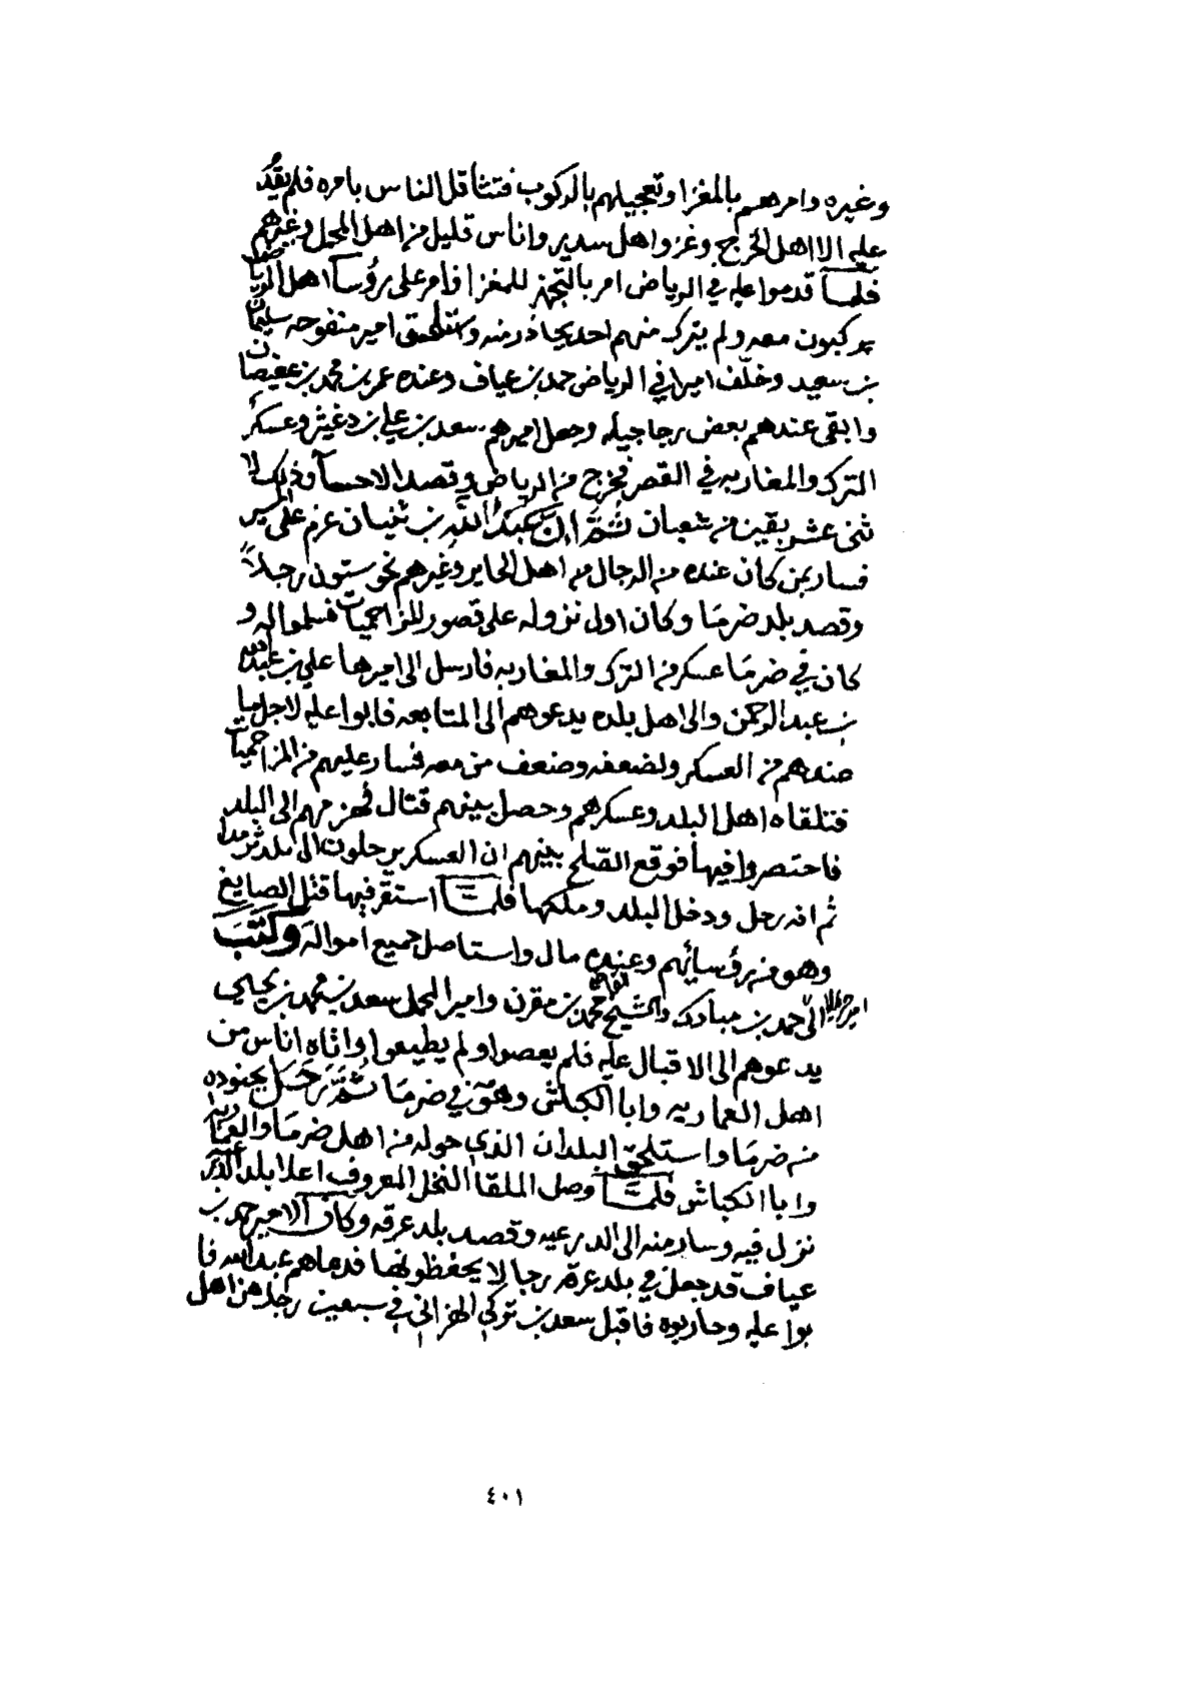 وغيره وامرهم بالمغزا وتعجيلهم بالركوب فتثاقل الناس بامره فلم يقدُم
عليه الا اهل الخرج وغزو اهل سدير واناس قليل من اهل المحمل وغيرهم
فلما قدموا عليه في الرياض امر بالتجهز للمغزا فأمر على رؤسآ اهل الرياض
يركبون معه ولم يترك منهم احد يحاذر منه واستلحق امير منفوحه سليمان
بن سعيد وخلّف اميرا في الرياض حمد بن عياف وعنده عمر بن محمد بن عفيصان
وابقى عندهم بعض رجاجيله وجعل اميرهم سعد بن علي بن دغيثر وعسكر
الترك والمغاربه في القصر فخرج من الرياض وقصد الاحسآ وذلك لا
ثنى عشر بقين من شعبان ثُمَّ إنَّ عَبْدُ اللَّهِ بن ثنيان عزم على المسير
فسار بمن كان عنده من الرجال من اهل الحاير وغيرهم نحو ستون رجلاً
وقصد بلد ضرمَا وكان اول نزوله على قصور المزاحميات فسلموا له و
كان في ضرمَا عسكر من الترك والمغاربه فارسل الى اميرها علي بن عبدالله
بن عبد الرحمن والى اهل بلده يدعوهم الى المتابعه فابوا عليه لاجل ما
عندهم من العسكر ولضعفه وضعف من معه فسار عليهم من المزاحميات
فتلقاه اهل البلد وعسكرهم وحصل بينهم قتال فهزمهم الى البلد
فاحتصروا فيها فوقع الصّلح بينهم ان العسكر يرحلون الى بلد ثرمدا
ثم انه رحل ودخل البلد وملكها فلمَّا استقر فيها قتل الصايغ
وهو من رؤسائهم وعنده مال واستاصل جميع امواله وكَتَبَ
الى حمد بن مبارك امير حريملا والشيخ محمد بن مقرن وامير المحمل سعد بن محمد بن يحيى
يدعوهم الى الاقبال عليه فلم يعصوا ولم يطيعوا واتاه اناس من
اهل العماريه وابا الكباش وهو في ضرمَا ثُمَّ رَحَل بجنوده
من ضرمَا واستلحق البلدان الذي حوله من اهل ضرمَا والعماريه
وابا الكباش فلمَّا وصل الملقا النخل المعروف اعلا بلد الدرعيه
نزل فيه وسار منه الى الدرعيه وقصد بلد عرقه وكان الامير حمد بن
عياف قد جعل في بلد عرقه رجالا يحفظونها فدعاهم عبدالله فا
بوا عليه وحاربوه فاقبل سعد بن تركي الهزاني في سبعين رجلا من اهل
٤٠١